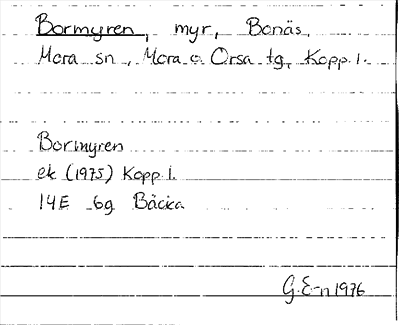 Bormyren, myr, Bonäs,
Mora sn, Mora o. Orsa tg, Kopp. l.
Bormyren
ek (1975) Kopp l.
14E 6g Bäcka
G. E-n 1976